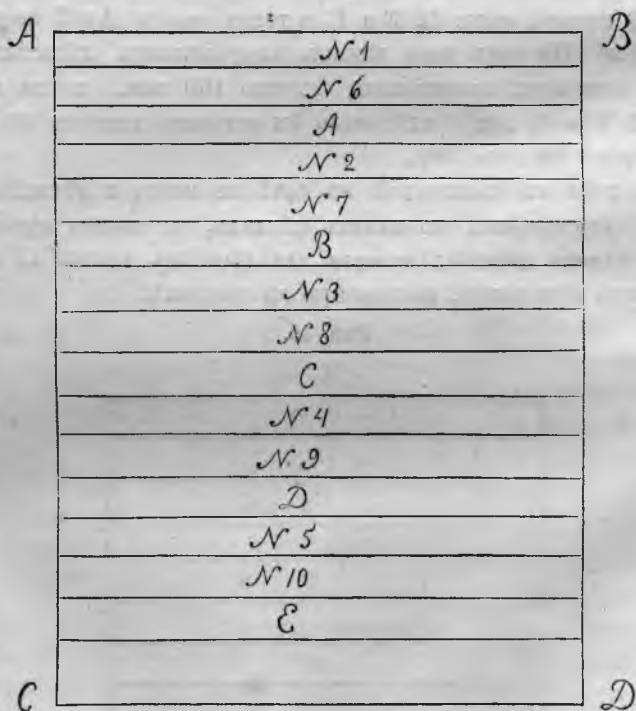 A B
N 1
N 6
A
N 2
N 7
B
N 3
N 8
C
N 4
N. 9
D
N 5
N 10
E
C D